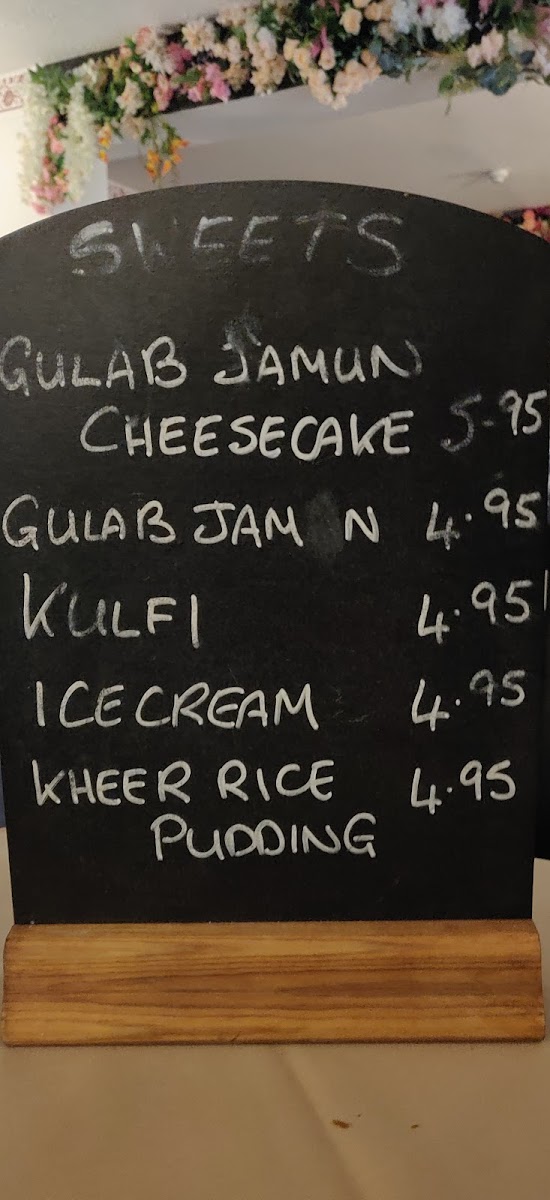 SWEETS
GULAB JAMUN
CHEESECAKE 5.95
GULAB JAM N 4.95
KULFI 4.95
ICECREAM 4.95
KHEER RICE 4.95
PUDDING